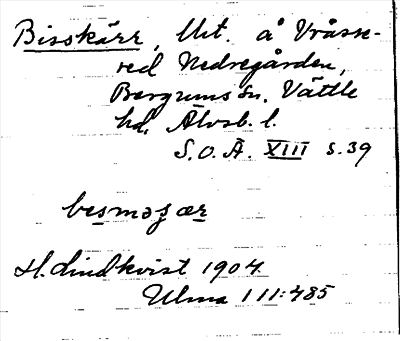 Bisskärr, Urt. å Vråsse-
red Nedregården,
Bergums sn. Vättle
hd. Älvsb. l.
S.O.Ä. XIII s. 39
besmosær
H. Lindkvist 1904
Ulma 111:485